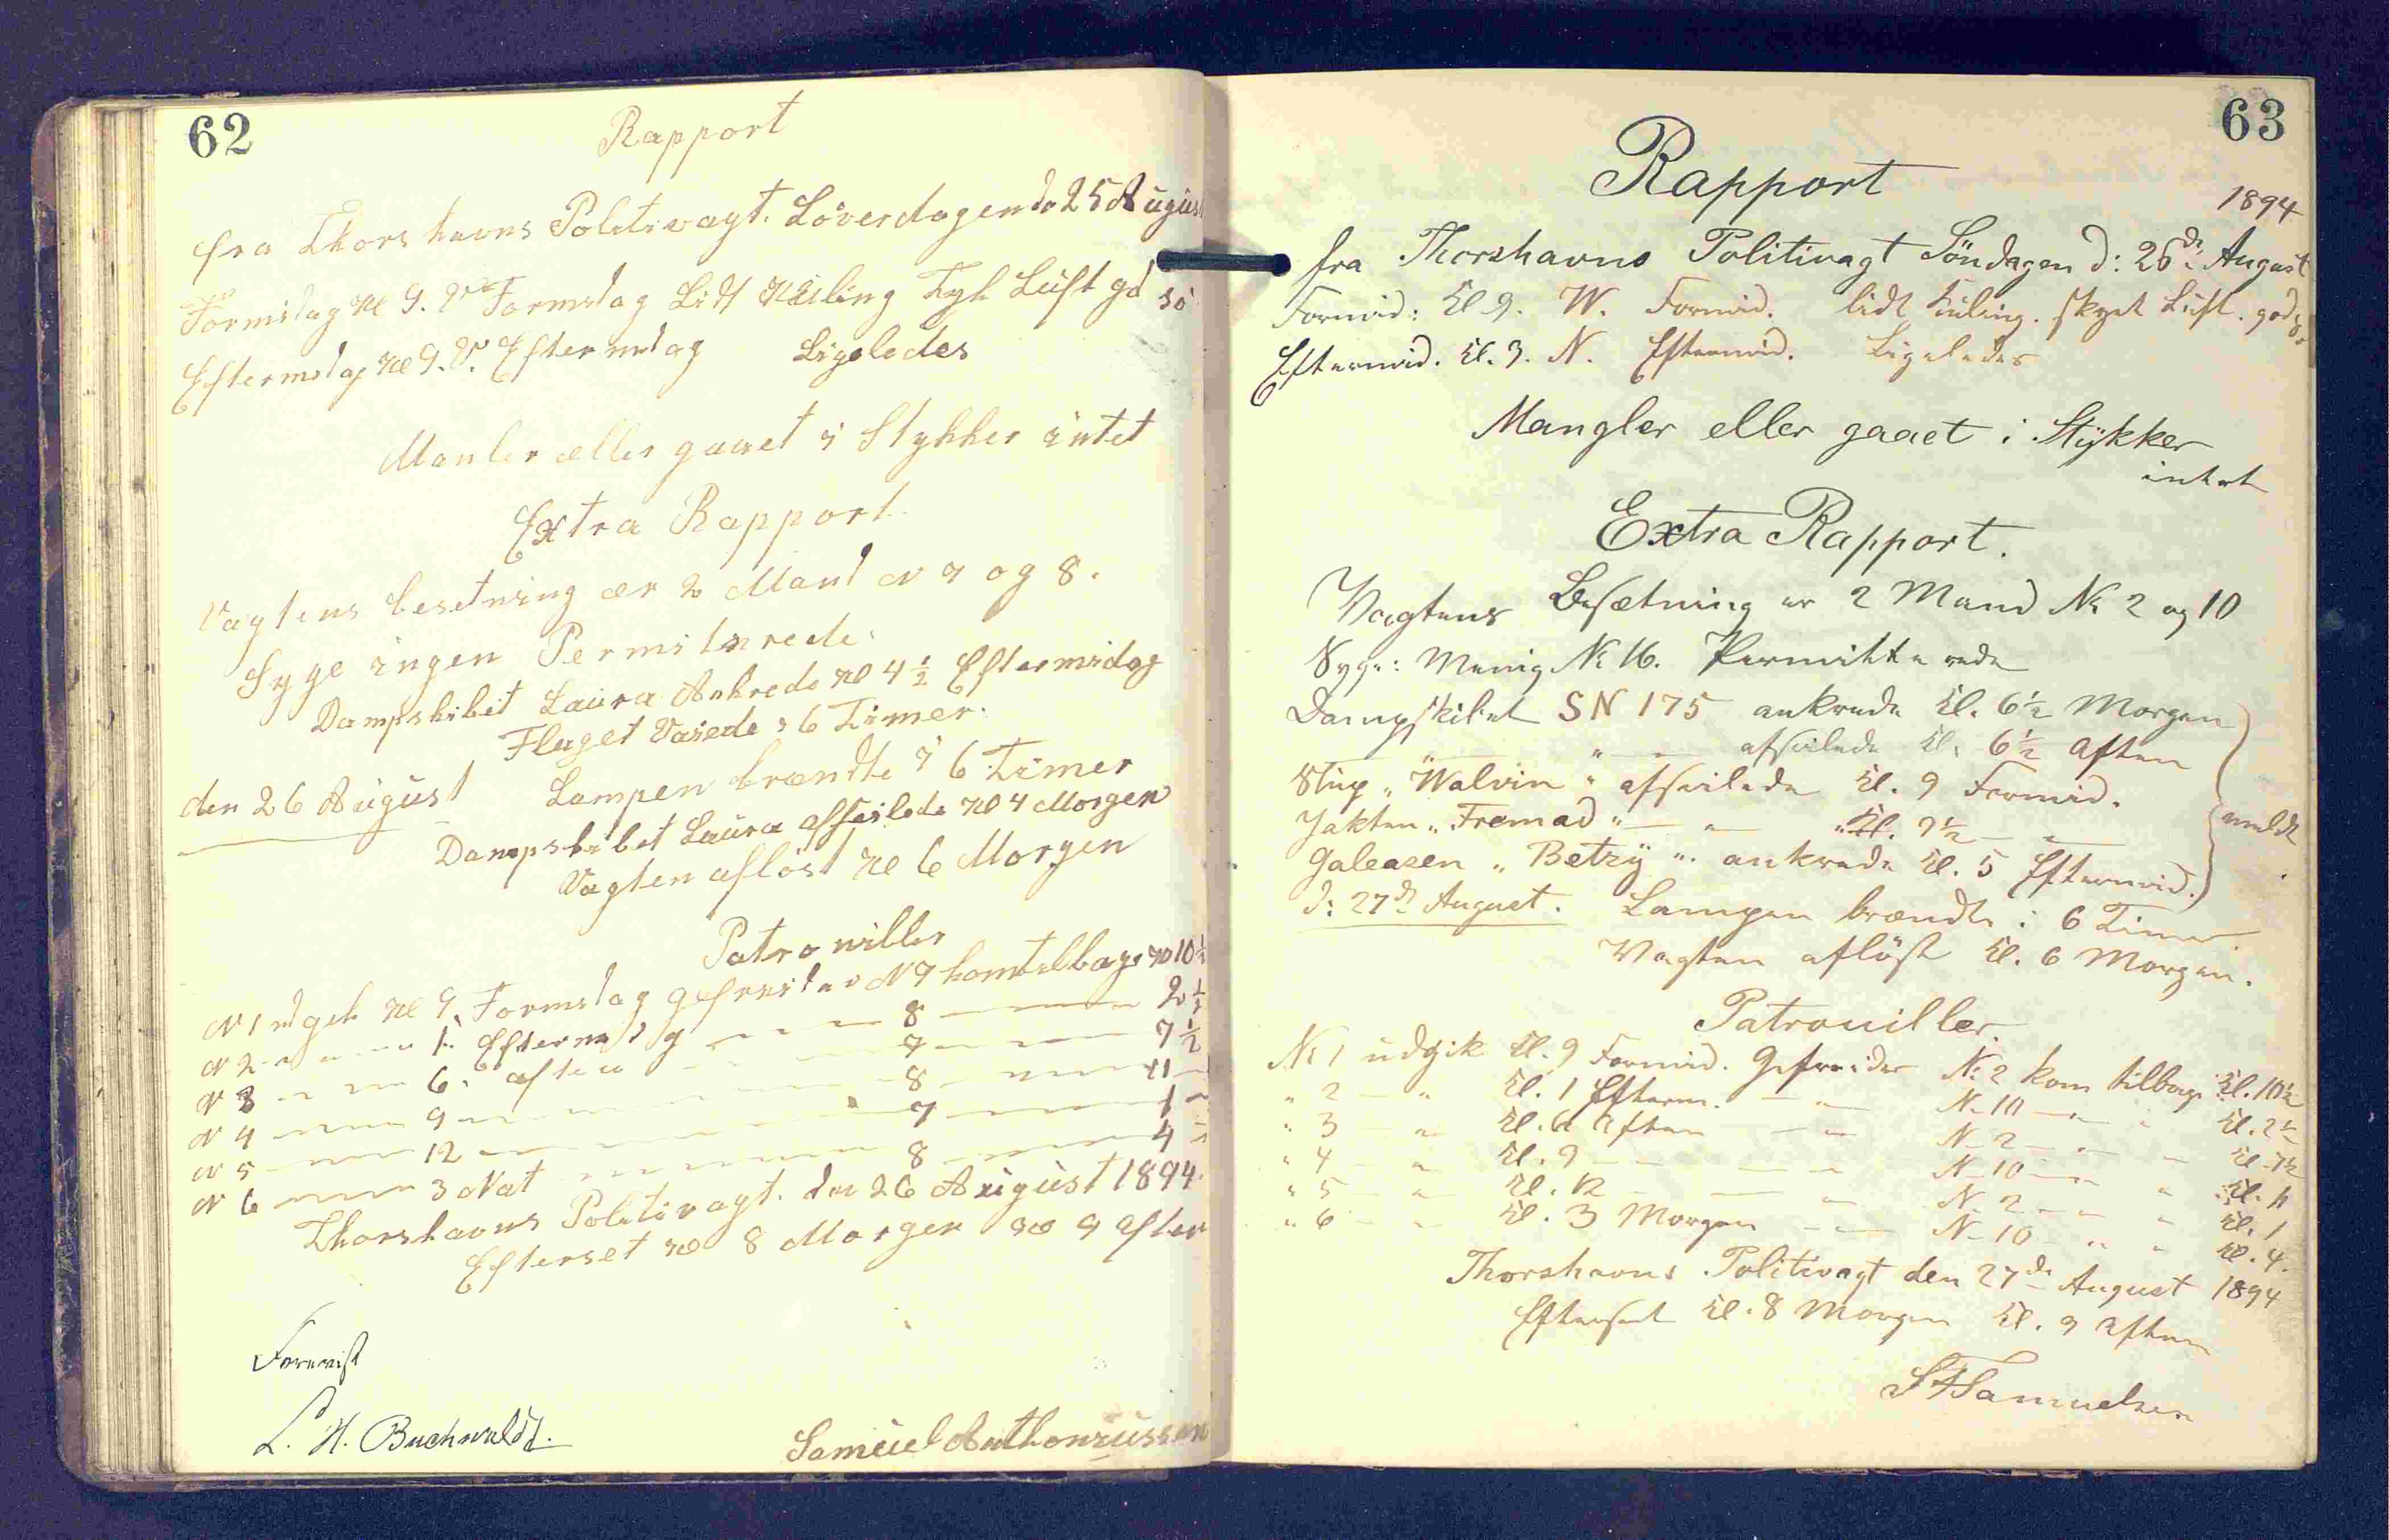 62
Rapport
fra Thorshavns Politivagt. Löverdagen d 25 August
Formidag Kl 9. V Formdag Lidt Kuling Tyk Luft gd sö
Eftermdag Kl 9. V. Eftermdag Ligeledes
Manler eller gaaet i Stykker intet
Extra Rapport
Vagtens besetning er 2 Mand N 7 og 8.
Syge ingen Permitterede
Dampskibet Laura Ankrede Kl 4 1/2 Eftermidag
Flaget Vaiede i 6 Timer.
den 26 August Lampen brændte i 6 Timer
Dampskibet Laura afseilede Kl 4 Morgen
Vagten aflöst Kl 6 Morgen
Patrouiller
N 1 udgek Kl 9. Formdag gefreider N 7 kom telbage Kl 10 1/2
N 2 " " " 1. Eftermdag — " — 8 — " — 2 1/2
N 3 " — " 6. aften — " — 7 — " — 7 1/2
N 4 — " — 9 — " — 8 — " — 11
N 5 — " — 12 — " — 7 — " — 1
N 6 — " — 3 Nat — " — 8 — " — 4
Thorshavns Politivagt. den 26 August 1894.
Efterset Kl 8 Morgen Kl 9 aften
Forevist
L. H. Buchwaldt.
Samuel Anthoniussen
63
Rapport
1894
fra Thorshavns Politivagt Söndagen d: 26de August
Formid: Kl 9. W. Formid. lidt Kuling. skyet Luft. god S.
Eftermid. Kl. 3. N. Eftermid. Ligeledes
Mangler eller gaaet i Stykker
intet
Extra Rapport.
Vagtens Besætning er 2 Mand No 2 og 10
Syge: Menig No 16. Permitterede
Dampskibet SN 175 ankrede Kl. 6 1/2 Morgen
— " — " — afseilede Kl. 6 1/2 Aften
Slup "Walvin" afseilede Kl. 9 Formid.
Jakten "Fremad" — " — " Kl. 9 1/2 — " —
Galeasen "Betzy" ankrede Kl. 5 Eftermid.
meldt
d: 27de August. Lampen brændte i 6 Timer.
Vagten aflöst Kl. 6 Morgen.
Patrouiller.
No 1 udgik Kl. 9 Formid. Gefreider No 2 kom tilbage Kl. 10 1/2
" 2 — " Kl. 1 Efterm. — " — N— 10 — " " Kl. 2 1/2
" 3 — " Kl. 6 Aften — " — N— 2 — " — Kl. 7 1/2
" 4 — " Kl. 9 — — " N— 10 — " " Kl. 11
" 5 — " Kl. 12 — — " N— 2 — " " Kl. 1
" 6 — " Kl. 3 Morgen — " — N— 10 — " " Kl. 4.
Thorshavns Politivagt den 27de August 1894
Efterset Kl. 8 Morgen Kl. 9 Aften
Samuelsen